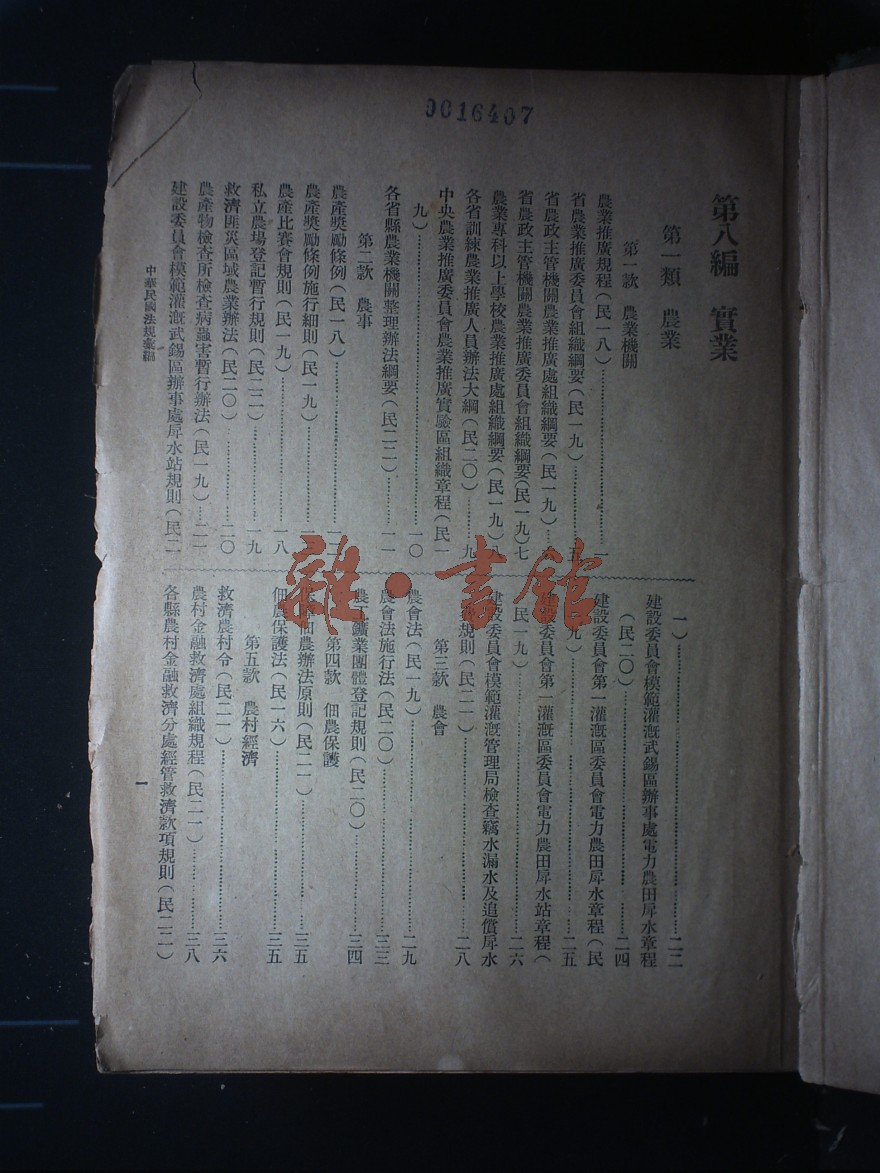 0016407
第八編　實業
第一類　農業
第一款　農業機關
農業推廣規程(民一八)…………一
省農業推廣委員會組織綱要(民一九)…………五
省農政主管機關農業推廣處組織綱要(民一九)……
省農政主管機關農業推廣委員會組織綱要(民一九)七
農業專科以上學校農業推廣處組織綱要(民一九)八
各省訓練農業推廣人員辦法大綱(民二〇)……九
中央農業推廣委員會農業推廣實驗區組織章程(民一
九)…………一〇
各省縣農業機關整理辦法綱要(民二二)……一一
第二款　農事
農產獎勵條例(民一八)…………一二
農產獎勵條例施行細則(民一九)…………
農產比賽會規則(民一九)…………一八
私立農場登記暫行規則(民二二)…………一九
救濟匪災區域農業辦法(民二〇)…………二〇
農產物檢查所檢查病蟲害暫行辦法(民一九)…二一
建設委員會模範灌漑武錫區辦事處戽水站規則(民二
一)…………二二
建設委員會模範灌漑武錫區辦事處電力農田戽水章程
(民二〇)…………二四
建設委員會第一灌漑區委員會電力農田戽水章程(民
九)…………二五
建設委員會第一灌漑區委員會電力農田戽水站章程(
民一九)…………二六
建設委員會模範灌漑管理局檢查竊水漏水及追償戽水
規則(民二一)…………二八
第三款　農會
農會法(民一九)…………二九
農會法施行法(民二〇)…………三三
農工鑛業團體登記規則(民二〇)…………三四
第四款　佃農保護
佃農辦法原則(民二一)…………三五
佃農保護法(民一六)…………三五
第五款　農村經濟
救濟農村令(民二一)…………三六
農村金融救濟處組織規程(民二一)…………三八
各縣農村金融救濟分處經管救濟款項規則(民二二)
中華民國法規彙編
一
雜·書館